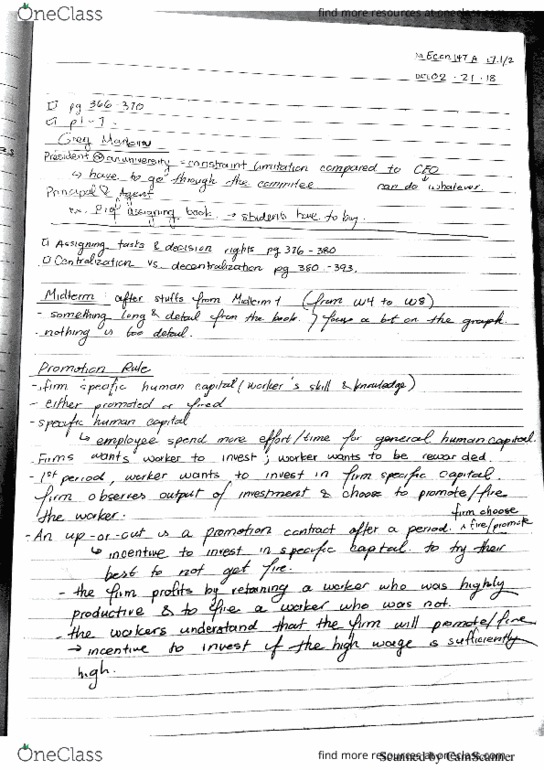 OneClass
find more resources at oneclass.com
Econ 147 A 17.1/2
02 - 21 - 18
pg 366 - 370
p1 - 7
Greg
President @ an university = constraint limitation compared to CEO
↳ have to go through the commitee can do whatever.
Principal & Agent
ex. Prof assigning book. → students have to buy.
Assigning tasks & decision rights pg 376 - 380
Centralization vs. decentralization pg 380 - 393.
Midterm : after stuffs from Midterm 1 (from W4 to W8)
- something long & detail from the book. } focus a bit on the graph.
- nothing is too detail.
Promotion Rule
- firm specific human capital (worker's skill & knowledge)
- either promoted or fired
- specific human capital
↳ employee spend more effort/time for general human capital.
- Firms wants worker to invest ; worker wants to be rewarded.
- 1st period, worker wants to invest in firm specific capital
firm observes output of investment & choose to promote/fire
the worker. firm choose
- An up-or-out is a promotion contract after a period. fire/promote
↳ incentive to invest in specific capital. to try their
best to not get fire.
- the firm profits by retaining a worker who was highly
productive & to fire a worker who was not.
- the workers understand that the firm will promote/fire
→ incentive to invest if the high wage is sufficiently
high.
OneClass
find more resources at oneclass.com
Scanned by CamScanner